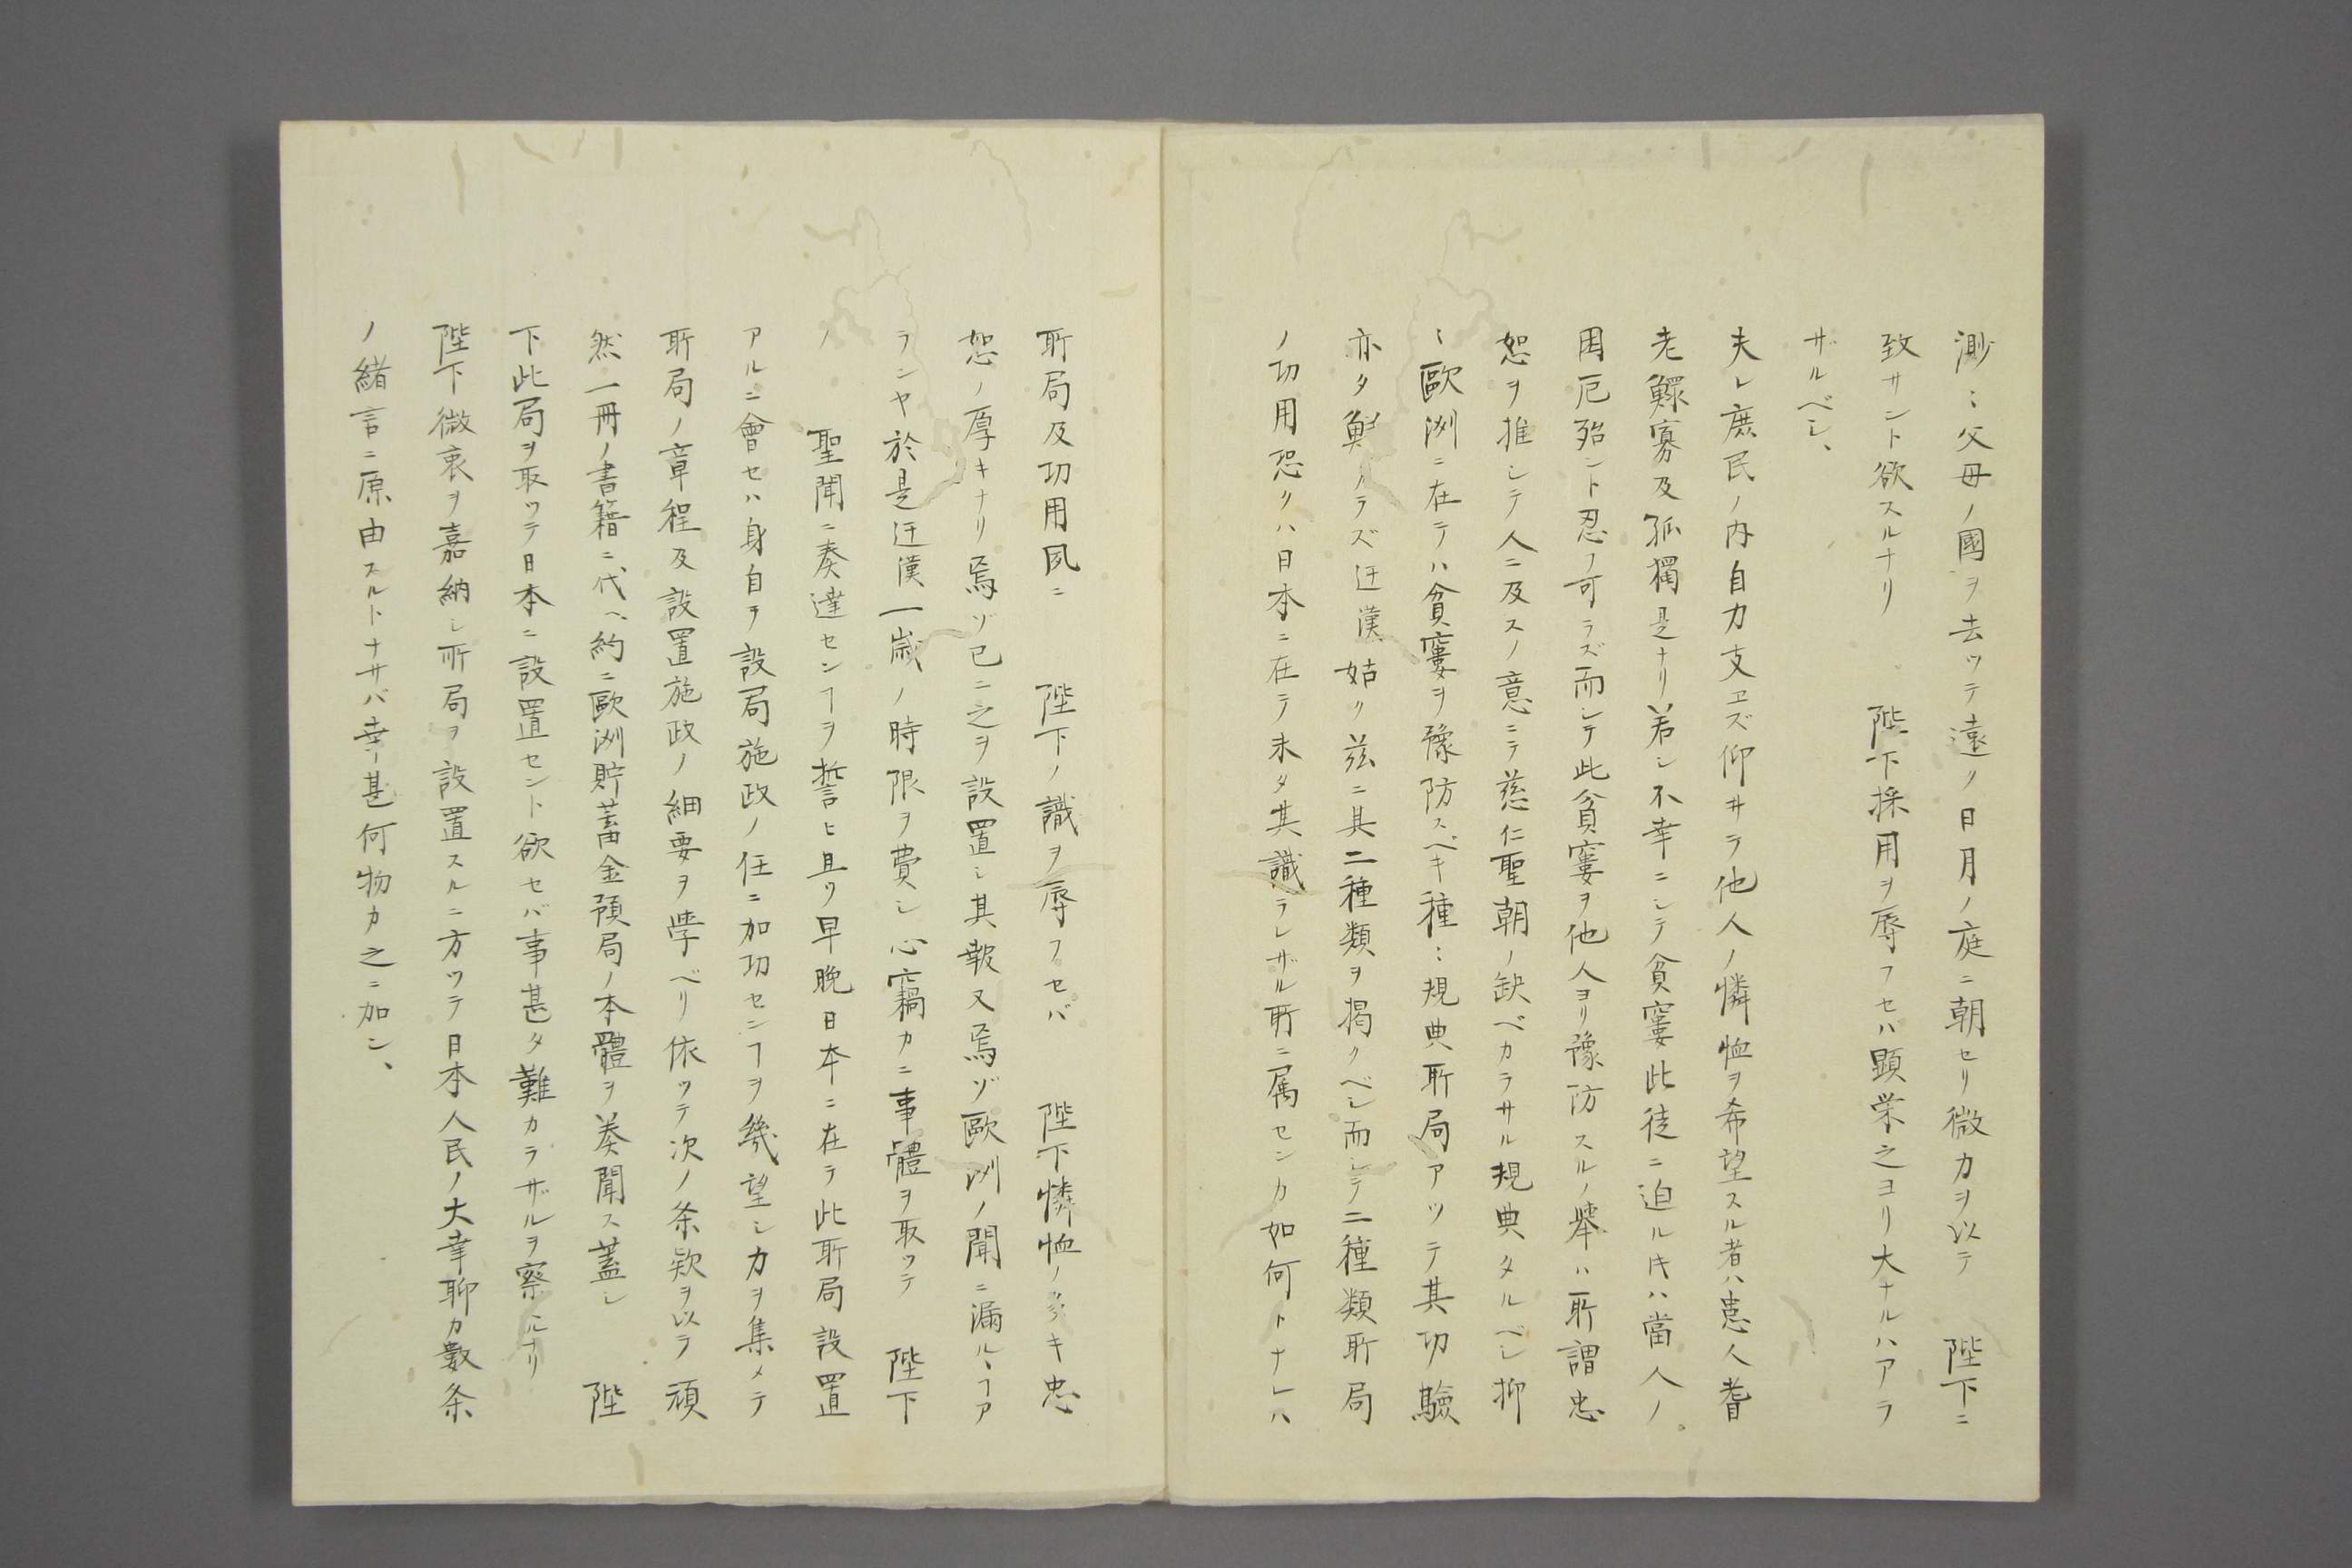 渺〻父母ノ國ヲ去ツテ遠ク日月ノ庭ニ朝セリ微力ヲ以テ　陛下ニ
致サント欲スルナリ　陛下採用ヲ辱フセハ顕栄之ヨリ大ナルハアラ
ザルベシ、
夫レ庶民ノ内自力支ヱズ仰ヰラ他人ノ憐恤ヲ希望スル者ハ恚人耆
老鰥寡及孤獨是ナリ若シ不幸ニシテ貧窶此徒ニ迫ル𬼀ハ當人ノ
困厄殆ント忍ノ可ラズ而シテ此貧窶ヲ他人ヨリ豫防スルノ舉ハ所謂忠
恕ヲ推シテ人ニ及スノ意ニテ慈仁聖朝ノ缺ベカラサル規典タルベシ抑
〻歐洲ニ在テハ貧窶ヲ豫防スベキ種〻規典所局アツテ其功驗
亦タ鮮ノラズ迂漢姑ク茲ニ其二種類ヲ掲クベシ而シテ二種類所局
ノ功用恐クハ日本ニ在テ未タ其識ラレザル所ニ属センカ如何トナレハ
所局及功用夙ニ　陛下ノ識ヲ辱フセバ　陛下憐恤ノ多キ忠
恕ノ厚キナリ焉ゾ已ニ之ヲ設置シ其報又焉ゾ歐洲ノ聞ニ漏ルヽヿア
ランヤ於是迂漢一歳ノ時限ヲ費シ心竊カニ事體ヲ取ツテ　陛下
ノ　聖聞ニ奏達センヿヲ誓ヒ且ツ早晩日本ニ在テ此所局設置
アルニ會セハ身自ヲ設局施政ノ任ニ加功センヿヲ幾望シ力ヲ集メテ
所局ノ章程及設置施政ノ細要ヲ學ベリ依ツテ次ノ条欵ヲ以テ頑
然一冊ノ書籍ニ代ヘ約ニ歐洲貯蓄金預局ノ本體ヲ奏聞ス蓋シ　陛
下此局ヲ取ツテ日本ニ設置セント欲セバ事甚タ難カラザルヲ察ルナリ
陛下微衷ヲ嘉納シ所局ヲ設置スルニ方ツテ日本人民ノ大幸聊カ數条
ノ緒言ニ原由スルトナサバ幸ヒ甚何物カ之ニ加ン、